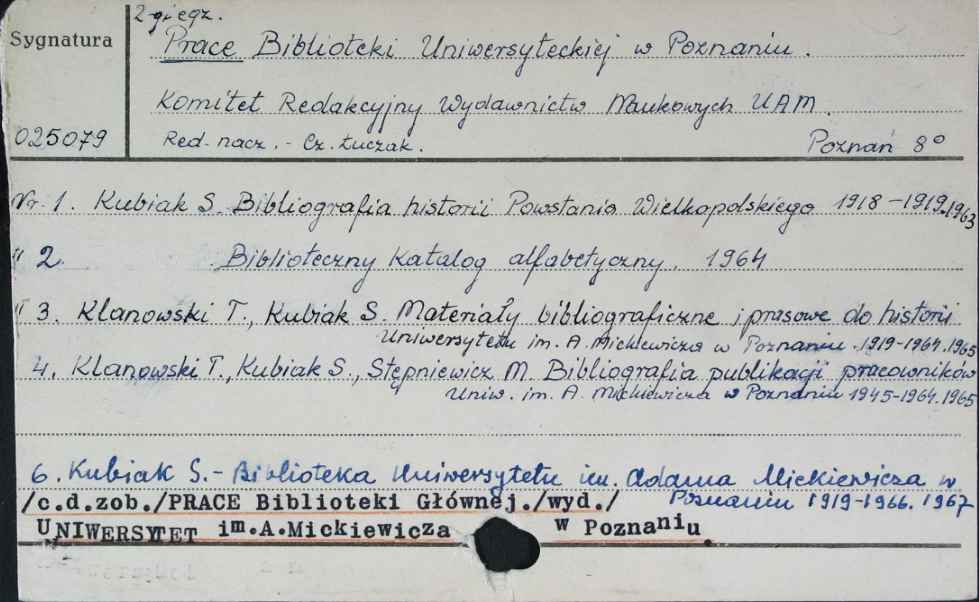 2-gi egz.
Sygnatura
Prace Biblioteki Uniwersyteckiej w Poznaniu.
Komitet Redakcyjny Wydawnictw Naukowych UAM
025079
Red. nacz. - Cz. Łuczak.
Poznań 8°
Nr. 1. Kubiak S. Bibliografia historii Powstania Wielkopolskiego 1918-1919. 1963
" 2. Biblioteczny Katalog alfabetyczny. 1964
" 3. Klanowski T., Kubiak S. Materiały bibliograficzne i prasowe do historii
Uniwersytetu im. A. Mickiewicza w Poznaniu. 1919-1964. 1965
4. Klanowski T., Kubiak S., Stępniewicz M. Bibliografia publikacji pracowników
Uniw. im. A. Mickiewicza w Poznaniu 1945-1964. 1965
6. Kubiak S. - Biblioteka Uniwersytetu im. Adama Mickiewicza w
Poznaniu 1919-1966. 1967
/c.d.zob./PRACE Biblioteki Głównej./wyd./
UNIWERSYTET im.A.Mickiewicza w Poznaniu.